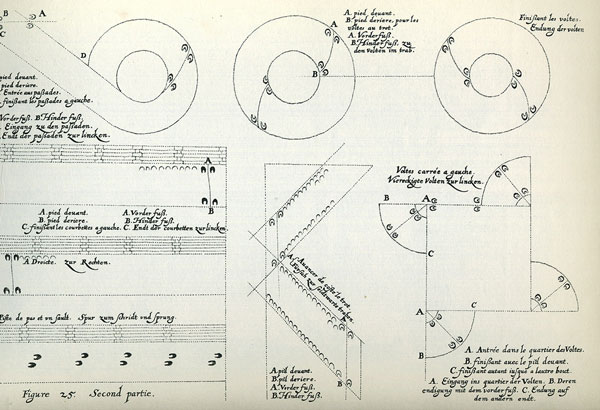 B A
C
D
pied douant.
pied deriere.
Entrée aux passades.
finissant les passades a gauche.
Vorderfuß. B. Hinder fuß.
Eingang zu den passaden.
Endt der passaden zur lincken.
A. pied douant.
B. pied deriere, pour les
voltes au trot.
A. Vorderfuß.
B. Hinder fuß, zu
den volten im trab.
A
B
Finissant les voltes.
Endung der volten
A
B
A. pied douant. A. Vorder fuß.
B. pied deriere. B. Hinder fuß.
C. finissant les courbettes a gauche. C. Endt der courbetten zur lincken.
A Droicte. zur Rechten.
Piste de pas et un sault. Spur zum schridt vnd sprung.
Figure 25. Second partie.
A. pied douant.
B. pied deriere.
A. Vorder fuß.
B. Hinder fuß.
B
Voltes carrée a gauche.
Viereckigte Volten zur lincken.
B A
C
A C
B
A. Antrée dans le quartier des Voltes.
B. finissant auec le pied douant.
C. finissant autant iusque a lautre bout.
A. Eingang ins quartier der Volten. B. Deren
endigung mit dem vorder fuß. C. Endung auf
dem andern endt.